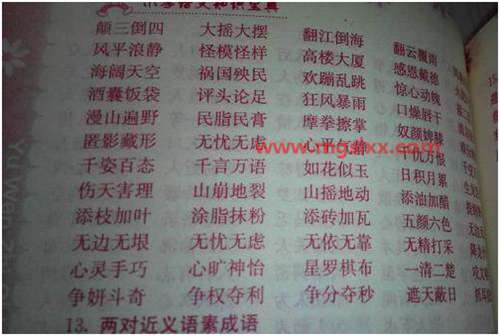 小学语文知识宝典
颠三倒四 大摇大摆 翻江倒海 翻云覆雨
风平浪静 怪模怪样 高楼大厦 感恩戴德
海阔天空 祸国殃民 欢蹦乱跳 惊心动魄
酒囊饭袋 评头论足 狂风暴雨 口燥唇干
漫山遍野 民脂民膏 摩拳擦掌 奴颜婢膝
匿影藏形 无忧无虑 千仇万恨
www.mgslxx.com
千姿百态 千言万语 如花似玉 日积月累
伤天害理 山崩地裂 山摇地动 添油加醋
添枝加叶 涂脂抹粉 添砖加瓦 五颜六色
无边无垠 无忧无虑 无依无靠 无精打采
心灵手巧 心旷神怡 星罗棋布 一清二楚
争妍斗奇 争权夺利 争分夺秒 遮天蔽日
13. 两对近义语素成语